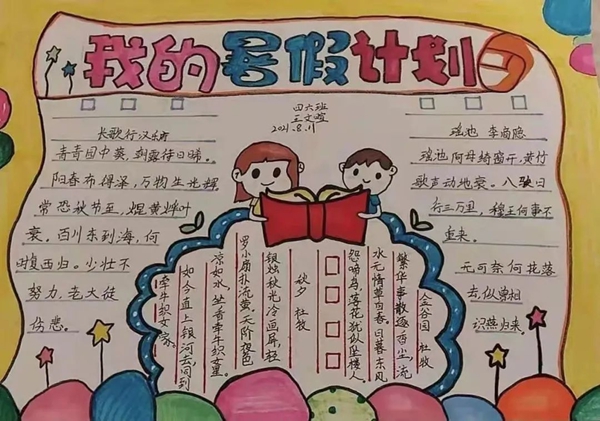 我的暑假计划
四六班
王文暄
2021.8.11
长歌行 汉乐府
青青园中葵,朝露待日晞。
阳春布得泽,万物生光辉
常恐秋节至,焜黄华叶
衰。百川东到海,何
时复西归。少壮不
努力,老大徒
伤悲。
瑶池 李商隐
瑶池阿母绮窗开,黄竹
歌声动地哀。八骏日
行三万里,穆王何事不
重来。
无可奈何花落
去,似曾相
识燕归来。
金谷园 杜牧
繁华事散逐香尘,流
水无情草自春。日暮东风
怨啼鸟,落花犹似坠楼人。
秋夕 杜牧
银烛秋光冷画屏,轻
罗小扇扑流萤。天阶夜色
凉如水,坐看牵牛织女星。
如今直上银河去,同到
牵牛织女家。